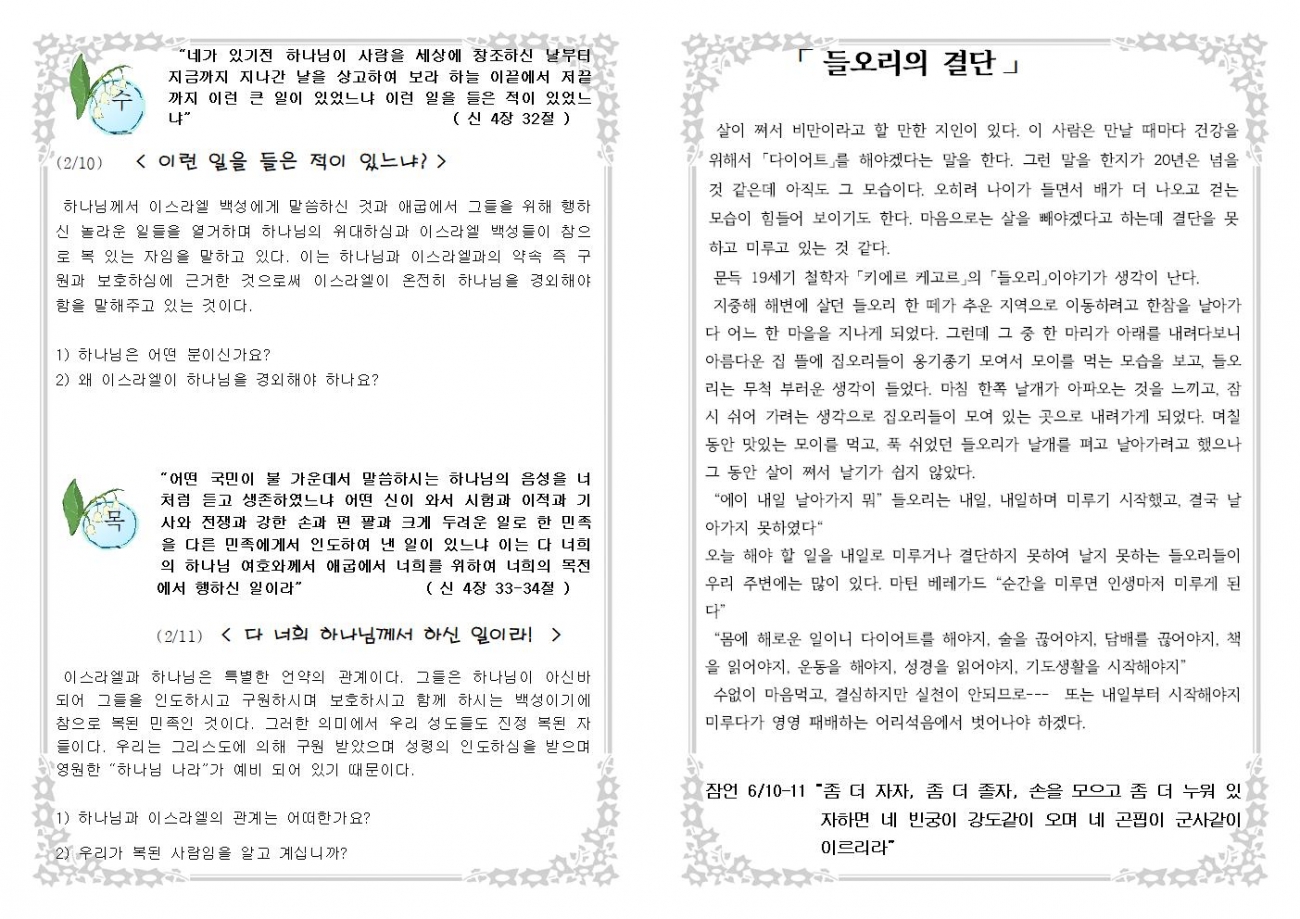 수
"네가 있기전 하나님이 사람을 세상에 창조하신 날부터
지금까지 지나간 날을 상고하여 보라 하늘 이끝에서 저끝
까지 이런 큰 일이 있었느냐 이런 일을 들은 적이 있었느
냐" ( 신 4장 32절 )
(2/10) < 이런 일을 들은 적이 있느냐? >
하나님께서 이스라엘 백성에게 말씀하신 것과 애굽에서 그들을 위해 행하
신 놀라운 일들을 열거하며 하나님의 위대하심과 이스라엘 백성들이 참으
로 복 있는 자임을 말하고 있다. 이는 하나님과 이스라엘과의 약속 즉 구
원과 보호하심에 근거한 것으로써 이스라엘이 온전히 하나님을 경외해야
함을 말해주고 있는 것이다.
1) 하나님은 어떤 분이신가요?
2) 왜 이스라엘이 하나님을 경외해야 하나요?
목
"어떤 국민이 불 가운데서 말씀하시는 하나님의 음성을 너
처럼 듣고 생존하였느냐 어떤 신이 와서 시험과 이적과 기
사와 전쟁과 강한 손과 편 팔과 크게 두려운 일로 한 민족
을 다른 민족에게서 인도하여 낸 일이 있느냐 이는 다 너희
의 하나님 여호와께서 애굽에서 너희를 위하여 너희의 목전
에서 행하신 일이라" ( 신 4장 33-34절 )
(2/11) < 다 너희 하나님께서 하신 일이라! >
이스라엘과 하나님은 특별한 언약의 관계이다. 그들은 하나님이 아신바
되어 그들을 인도하시고 구원하시며 보호하시고 함께 하시는 백성이기에
참으로 복된 민족인 것이다. 그러한 의미에서 우리 성도들도 진정 복된 자
들이다. 우리는 그리스도에 의해 구원 받았으며 성령의 인도하심을 받으며
영원한 "하나님 나라"가 예비 되어 있기 때문이다.
1) 하나님과 이스라엘의 관계는 어떠한가요?
2) 우리가 복된 사람임을 알고 계십니까?
「 들오리의 결단 」
살이 쪄서 비만이라고 할 만한 지인이 있다. 이 사람은 만날 때마다 건강을
위해서 「다이어트」를 해야겠다는 말을 한다. 그런 말을 한지가 20년은 넘을
것 같은데 아직도 그 모습이다. 오히려 나이가 들면서 배가 더 나오고 걷는
모습이 힘들어 보이기도 한다. 마음으로는 살을 빼야겠다고 하는데 결단을 못
하고 미루고 있는 것 같다.
문득 19세기 철학자 「키에르 케고르」의 「들오리」이야기가 생각이 난다.
지중해 해변에 살던 들오리 한 떼가 추운 지역으로 이동하려고 한참을 날아가
다 어느 한 마을을 지나게 되었다. 그런데 그 중 한 마리가 아래를 내려다보니
아름다운 집 뜰에 집오리들이 옹기종기 모여서 모이를 먹는 모습을 보고, 들오
리는 무척 부러운 생각이 들었다. 마침 한쪽 날개가 아파오는 것을 느끼고, 잠
시 쉬어 가려는 생각으로 집오리들이 모여 있는 곳으로 내려가게 되었다. 며칠
동안 맛있는 모이를 먹고, 푹 쉬었던 들오리가 날개를 펴고 날아가려고 했으나
그 동안 살이 쪄서 날기가 쉽지 않았다.
"에이 내일 날아가지 뭐" 들오리는 내일, 내일하며 미루기 시작했고, 결국 날
아가지 못하였다"
오늘 해야 할 일을 내일로 미루거나 결단하지 못하여 날지 못하는 들오리들이
우리 주변에는 많이 있다. 마틴 베레가드 "순간을 미루면 인생마저 미루게 된
다"
"몸에 해로운 일이니 다이어트를 해야지, 술을 끊어야지, 담배를 끊어야지, 책
을 읽어야지, 운동을 해야지, 성경을 읽어야지, 기도생활을 시작해야지"
수없이 마음먹고, 결심하지만 실천이 안되므로--- 또는 내일부터 시작해야지
미루다가 영영 패배하는 어리석음에서 벗어나야 하겠다.
잠언 6/10-11 "좀 더 자자, 좀 더 졸자, 손을 모으고 좀 더 누워 있
자하면 네 빈궁이 강도같이 오며 네 곤핍이 군사같이
이르리라"